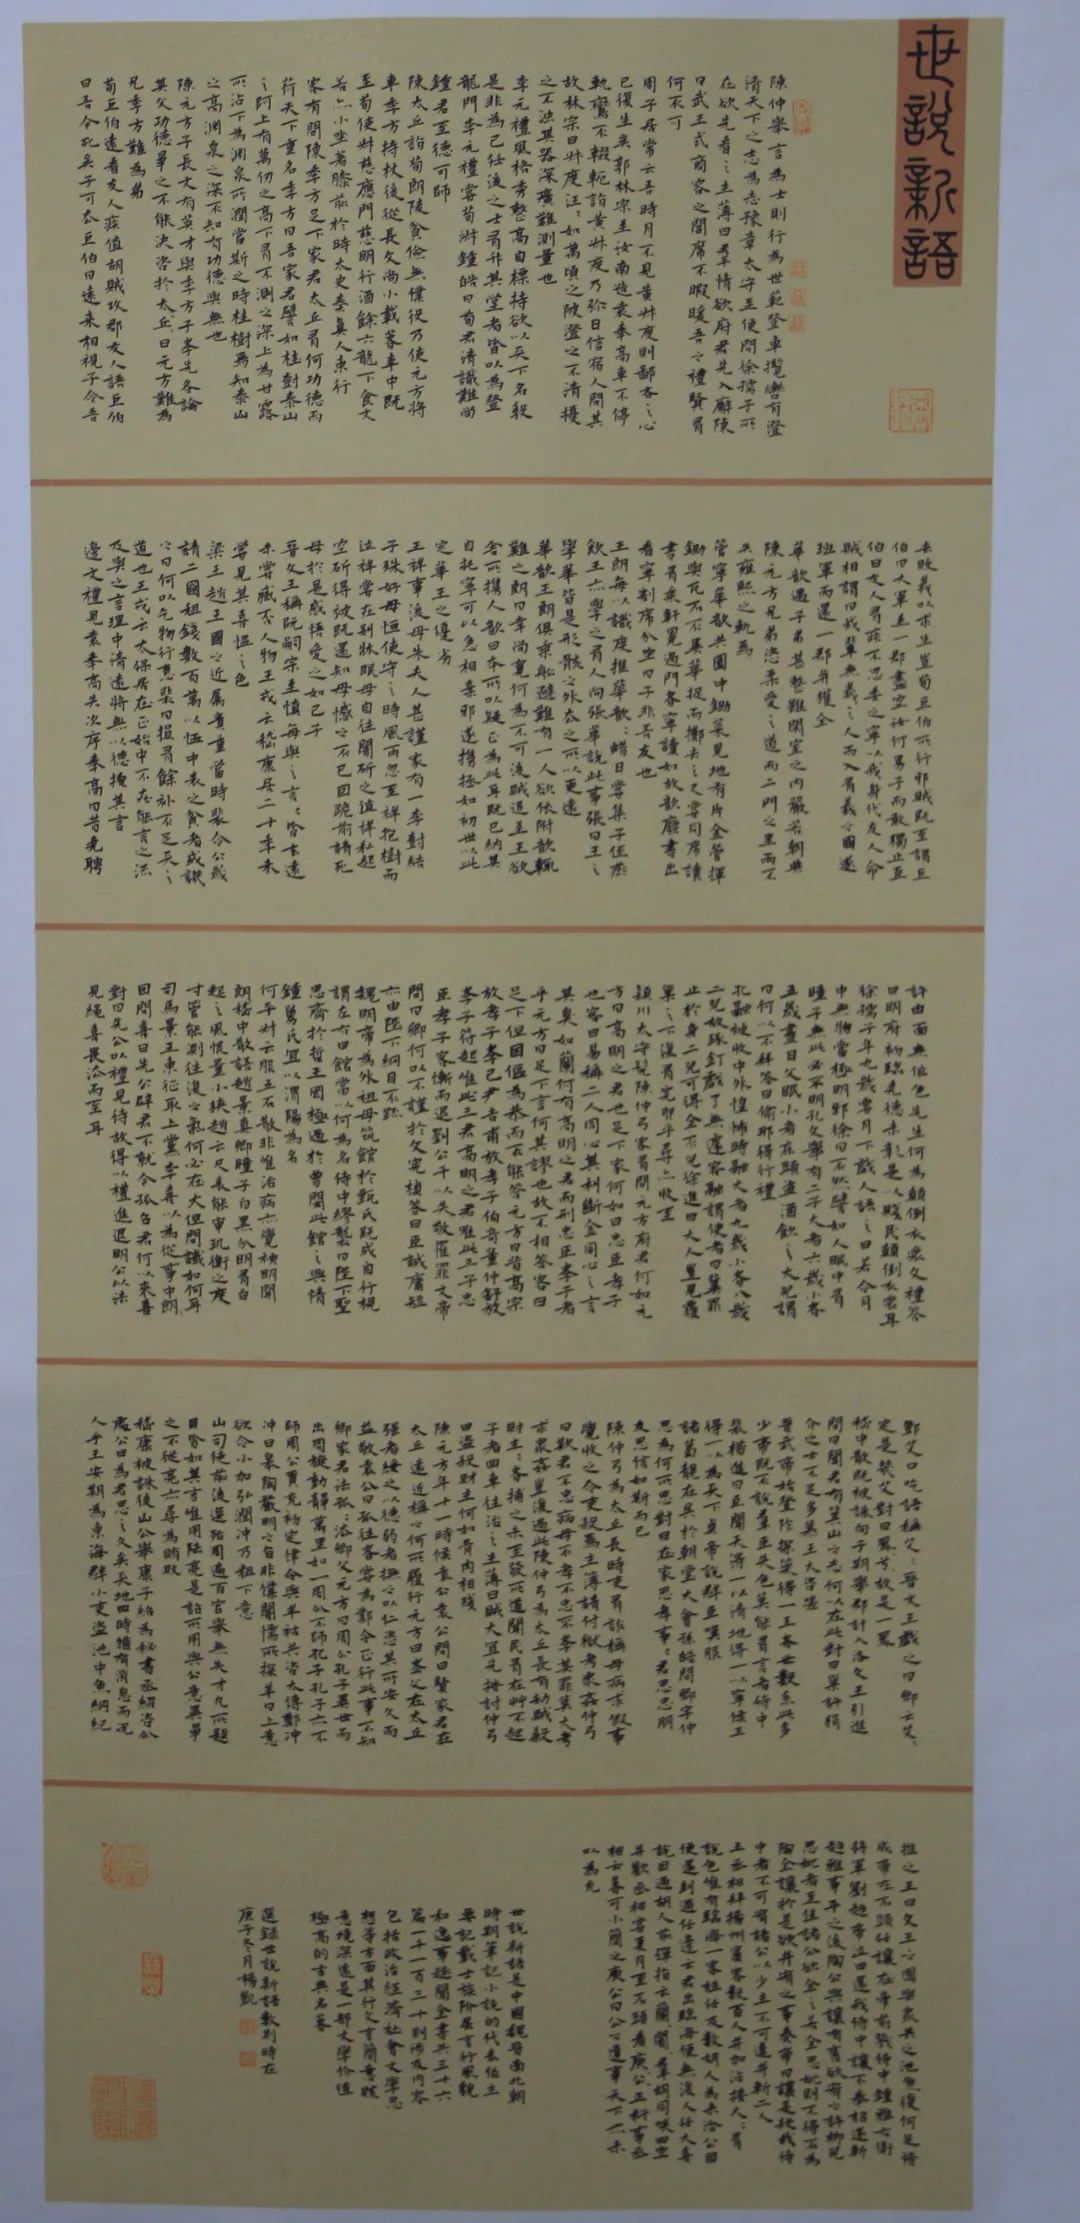 世說新語
陳仲舉言為士則行為世範登車攬轡有澄
清天下之志為豫章太守至便問徐孺子所
在欲先看之主薄曰羣情欲府君先入廨陳
曰武王式商容之閭席不暇暖吾之禮賢有
何不可
周子居常云吾時月不見黃叔度則鄙吝之心
已復生矣郭林宗至汝南造袁奉高車不停
軌鸞不輟軛詣黃叔度乃弥日信宿人問其
故林宗曰叔度汪〻如萬頃之陂澄之不清擾
之不濁其器深廣難測量也
李元禮風格秀整高自標持欲以天下名教
是非為己任後之士有升其堂者皆以為登
龍門李元禮嘗荀淑鍾皓曰荀君清識難尚
鍾君至德可師
陳太丘詣荀朗陵貧儉無僕役乃使元方將
車季方持杖後從長文尚小載著車中既
至荀使叔慈應門慈明行酒餘六龍下食文
若亦小坐著膝前於時太史奏真人東行
客有問陳季方足下家君太丘有何功德而
荷天下重名季方曰吾家君譬如桂樹泰山
之阿上有萬仞之高下有不測之深上為甘露
所沾下為淵泉所潤當斯之時桂樹焉知泰山
之高淵泉之深不知有功德與無也
陳元方子長文有英才與季方子孝先各論
其父功德爭之不能決咨於太丘曰元方難為
兄季方難為弟
荀巨伯遠看友人疾值胡賊攻郡友人語巨伯
曰吾今死矣子可去巨伯曰遠來相視子令吾
去敗義以求生豈荀巨伯所行邪賊既至謂巨
伯曰大軍至一郡盡空汝何男子而敢獨止巨
伯曰友人有疾不忍委之寧以我身代友人命
賊相謂曰我輩無義之人而入有義之國遂
班軍而還一郡并獲全
華歆遇子弟甚整雖閒室之內嚴若朝典
陳元方兄弟恣柔愛之道而二門之里兩不
失雍熙之軌焉
管寧華歆共園中鋤菜見地有片金管揮
鋤與瓦石不異華捉而擲去之又嘗同席讀
書有乘軒冕過門者寧讀如故歆廢書出
看寧割席分坐曰子非吾友也
王朗每以識度推華歆歆蜡日嘗集子侄燕
飲王亦學之有人向張華說此事張曰王之
學華皆是形骸之外去之所以更遠
華歆王朗俱乘船避難有一人欲依附歆輒
難之朗曰幸尚寬何為不可後賊追至王欲
舍所攜人歆曰本所以疑正為此耳既已納其
自託寧可以急相棄邪遂攜拯如初世以此
定華王之優劣
王祥事後母朱夫人甚謹家有一李樹結
子殊好母恒使守之時風雨忽至祥抱樹而
泣祥嘗在別牀眠母自往闇斫之值祥私起
空斫得被既還知母憾之不已因跪前請死
母於是感悟愛之如己子
晉文王稱阮嗣宗至慎每與之言言皆玄遠
未嘗臧否人物王戎云嵇康居二十年未
嘗見其喜慍之色
梁王趙王國之近屬貴重當時裴令公歲
請二國租錢數百萬以恤中表之貧者或譏
之曰何以乞物行惠裴曰損有餘補不足天之
道也王戎云太保居在正始中不在能言之流
及與之言理中清遠將無以德掩其言
邊文禮見袁奉高失次序奉高曰昔堯聘
許由面無怍色先生何為顛倒衣裳文禮答
曰明府初臨堯德未彰是以賤民顛倒衣裳耳
徐孺子年九歲嘗月下戲人語之曰若令月
中無物當極明邪徐曰不然譬如人眼中有
瞳子無此必不明孔文舉有二子大者六歲小者
五歲晝日父眠小者床頭盜酒飲之大兒謂
曰何以不拜答曰偷那得行禮
孔融被收中外惶怖時融大者九歲小者八歲
二兒故琢釘戲了無遽容融謂使者曰冀罪
止於身二兒可得全不兒徐進曰大人豈見覆
巢之下復有完卵乎尋亦收至
潁川太守髡陳仲弓客有問元方府君何如元
方曰高明之君也足下家何如曰忠臣孝子
也客曰易稱二人同心其利斷金同心之言
其臭如蘭何有高明之君而刑忠臣孝子者
乎元方曰足下言何其謬也故不相答客曰
足下但因傴為恭而不能答元方曰昔高宗
放孝子孝己尹吉甫放孝子伯奇董仲舒放
孝子符起唯此三君高明之君唯此三子忠
臣孝子客慚而退劉公幹以失敬罹罪文帝
問曰卿何以不謹於文憲楨答曰臣誠庸短
亦由陛下綱目不疏
魏明帝為外祖母筑館於甄氏既成自行視
謂左右曰館當以何為名侍中繆襲曰陛下聖
思齊於哲王罔極過於曾閔此館之興情
鍾舅氏宜以渭陽為名
何平叔云服五石散非唯治病亦覺神明開
朗嵇中散語趙景真卿瞳子白黑分明有白
起之風恨量小狹趙云尺表能審璣衡之度
寸管能測往復之氣何必在大但問識如何耳
司馬景王東征取上黨李喜以為從事中郎
因問喜曰先公辟君不就今孤召君何以來喜
對曰先公以禮見待故得以禮進退明公以法
見繩喜畏法而至耳
鄧艾口吃語稱艾艾晉文王戲之曰卿云艾艾
定是幾艾對曰鳳兮鳳兮故是一鳳
嵇中散既被誅向子期舉郡計入洛文王引進
問曰聞君有箕山之志何以在此對曰巢許狷
介之士不足多慕王大咨嗟
晉武帝始登阼探策得一王者世數系此多
少帝既不說羣臣失色莫能有言者侍中
裴楷進曰臣聞天得一以清地得一以寧侯王
得一以為天下貞帝說群臣嘆服
諸葛靚在吳於朝堂大會孫皓問卿字仲
思為何所思對曰在家思孝事君思忠朋
友思信如斯而已
陳仲弓為太丘長時吏有詐稱母病求假事
覺收之令吏殺焉主簿請付獄考眾姦仲弓
曰欺君不忠病母不孝不忠不孝其罪莫大考
求眾姦豈復過此陳仲弓為太丘長有劫賊殺
財主者捕之未至發所道聞民有在草不起
子者回車往治之主薄曰賊大宜先按討仲弓
曰盜殺財主何如骨肉相殘
陳元方年十一時候袁公袁公問曰賢家君在
太丘遠近稱之何所履行元方曰老父在太丘
強者綏之以德弱者撫之以仁恣其所安久而
益敬袁公曰孤往者嘗為鄴令正行此事不知
卿家君法孤孤法卿父元方曰周公孔子異世而
出周旋動靜萬里如一周公不師孔子孔子亦不
師周公賈充初定律令與羊祜共咨太傅鄭沖
沖曰皋陶嚴明之旨非僕闇懦所探羊曰上意
欲令小加弘潤沖乃粗下意
山司徒前後選殆周遍百官舉無失才凡所題
目皆如其言唯用陸亮是詔所用與公意異爭
之不從亮亦尋為賄敗
嵇康被誅後山公舉康子紹為秘書丞紹咨公
出處公曰為君思之久矣天地四時猶有消息而況
人乎王安期為東海郡小吏盜池中魚綱紀
推之王曰文王之囿與眾共之池魚復何足惜
成帝在石頭任讓在帝前戮侍中鍾雅右衛
將軍劉超帝泣曰還我侍中讓不奉詔遂斬
超雅事平之後陶公與讓有舊欲宥之許柳兒
思妣者至佳諸公欲全之若全思妣則不得不為
陶全讓於是欲并宥之事奏帝曰讓是殺我侍
中者不可宥諸公以少主不可違并斬二人
王丞相拜揚州賓客數百人并加沾接人人有
說色唯有臨海一客姓任及數胡人為未洽公因
便還到過任邊云君出臨海便無復人任大喜
說因過胡人前彈指云蘭闍蘭闍羣胡同笑四坐
并歡丞相嘗夏月至石頭看庾公公正料事丞
相云暑可小簡之庾公曰公之遺事天下亦未
以為允
世說新語是中國魏晉南北朝
時期筆記小說的代表作主
要記載士族階層言行風貌
和逸事趣聞全書共三十六
篇一千一百三十則涉及內容
包括政治經濟社會文學思
想等方面其行文言簡意賅
意境深遠是一部文學價值
極高的古典名著
選錄世說新語數則時在
庚子冬月楊凱